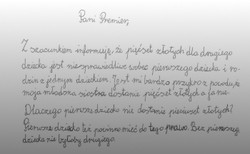 Pani Premier,
Z szacunkiem informuję, że pięćset złotych dla drugiego
dziecka jest niesprawiedliwe wobec pierwszego dziecka i ro-
dzin z jednym dzieckiem. Jest mi bardzo przykro z powodu, że
moja młodsza siostra dostanie pięćset złotych a ja nie.
Dlaczego pierwsze dziecko nie dostanie pięćset złotych?
Pierwsze dziecko też powinno mieć do tego prawo. Bez pierwszego
dziecka nie byłoby drugiego.